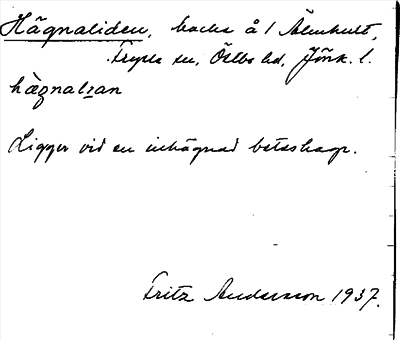 Hägnaliden, backe å 1 Älmhult,
Fryele sn, Östbo hd, Jönk. l.
hägnalɪan
Ligger vid en inhägnad beteshage.
Fritz Andersson 1937.